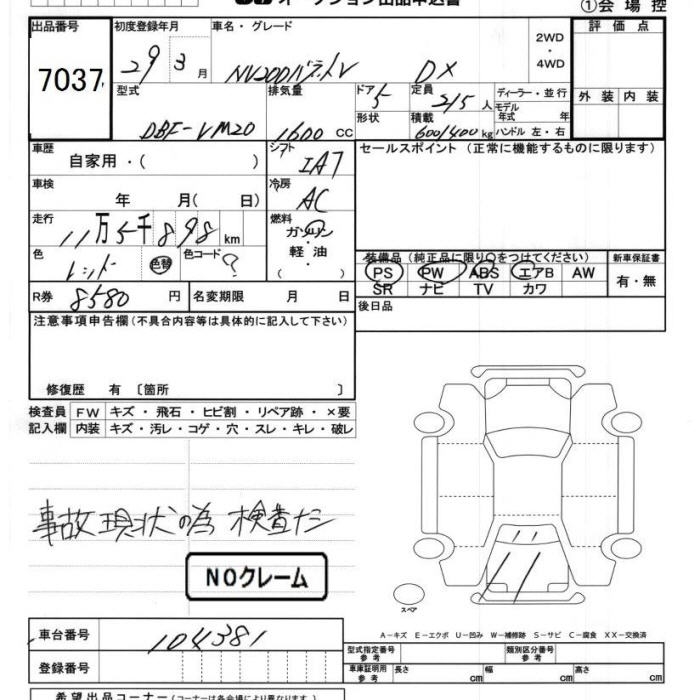 オークション出品申込書
①会場控
出品番号 初度登録年月 車名・グレード 2WD・4WD 評価点
7037 29 3月 NV200バネットV DX
外装 内装
型式 排気量 ドア 定員 ディーラー・並行
DBF-VM20 1600 cc 5 2/5人 モデル年式 年
形状 積載 600/400kg ハンドル 左・右
車歴 シフト セールスポイント (正常に機能するものに限ります)
自家用・( ) IA7
車検 冷房
年 月( 日) AC
走行 燃料
11万5千898km ガソリン・軽油
色 色替 色コード ( ) 装備品 (純正品に限り○をつけてください) 新車保証書
レッド ? PS PW ABS エアB AW 有・無
SR ナビ TV カワ
R券 8580円 名変期限 月 日 後日品
注意事項申告欄 (不具合内容等は具体的に記入して下さい)
修復歴 有 〔箇所 〕
検査員 FW キズ・飛石・ヒビ割・リペア跡・×要
記入欄 内装 キズ・汚レ・コゲ・穴・スレ・キレ・破レ
事故現状の為 検査ナシ
NOクレーム
スペア
A−キズ E−エクボ U−凹み W−補修跡 S−サビ C−腐食 XX−交換済
車台番号 104381
型式指定番号 参考 類別区分番号 参考
登録番号 車庫証明用 参考 長さ cm 幅 cm 高さ cm
希望出品コーナー (コーナーは各会場により異なります)